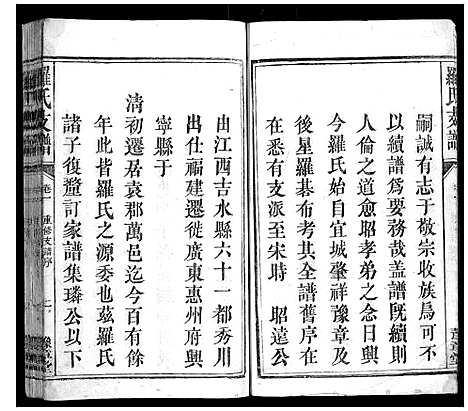 羅氏支譜
嗣誠有志于敬宗收族焉可不
以續譜爲要務哉蓋譜既續則
人倫之道愈昭孝弟之念愈切
今羅氏始自宜城肇祥豫章及
後星羅碁布考其全譜舊序在
在悉有支派至宋時 昭遠公
由江西吉水縣六十一都秀川
出仕福建遷徙廣東惠州府興
寧縣于
清初遷居袁郡萬邑迄今百有餘
年此皆羅氏之源委也茲羅氏
諸子復釐訂家譜集璘公以下
羅氏支譜
卷一
重修支譜序
豫章堂